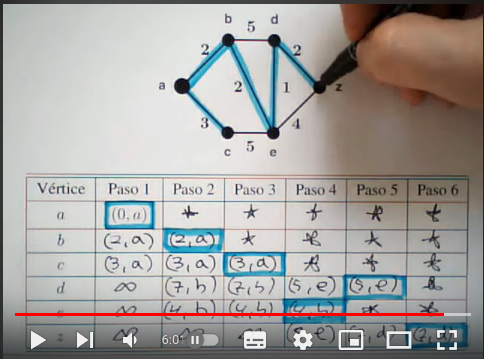 b 5 d
2 2
a 2 1 z
3 4
c 5 e
Vértice Paso 1 Paso 2 Paso 3 Paso 4 Paso 5 Paso 6
a (0, a) * * * * *
b (2, a) (2, a) * * * *
c (3, a) (3, a) (3, a) * * *
d ∞ (7, b) (7, b) (5, e) (5, e) *
e ∞ (4, b) (4, b) (4, b) * *
z ∞ ∞
6:0